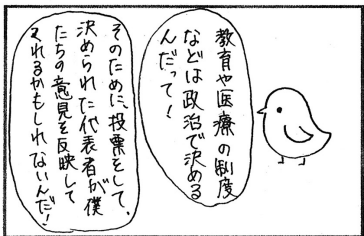 教育や医療の制度
などは政治で決める
んだって！
そのために、投票をして、
決められた代表者が僕
たちの意見を反映して
くれるかもしれないんだ！